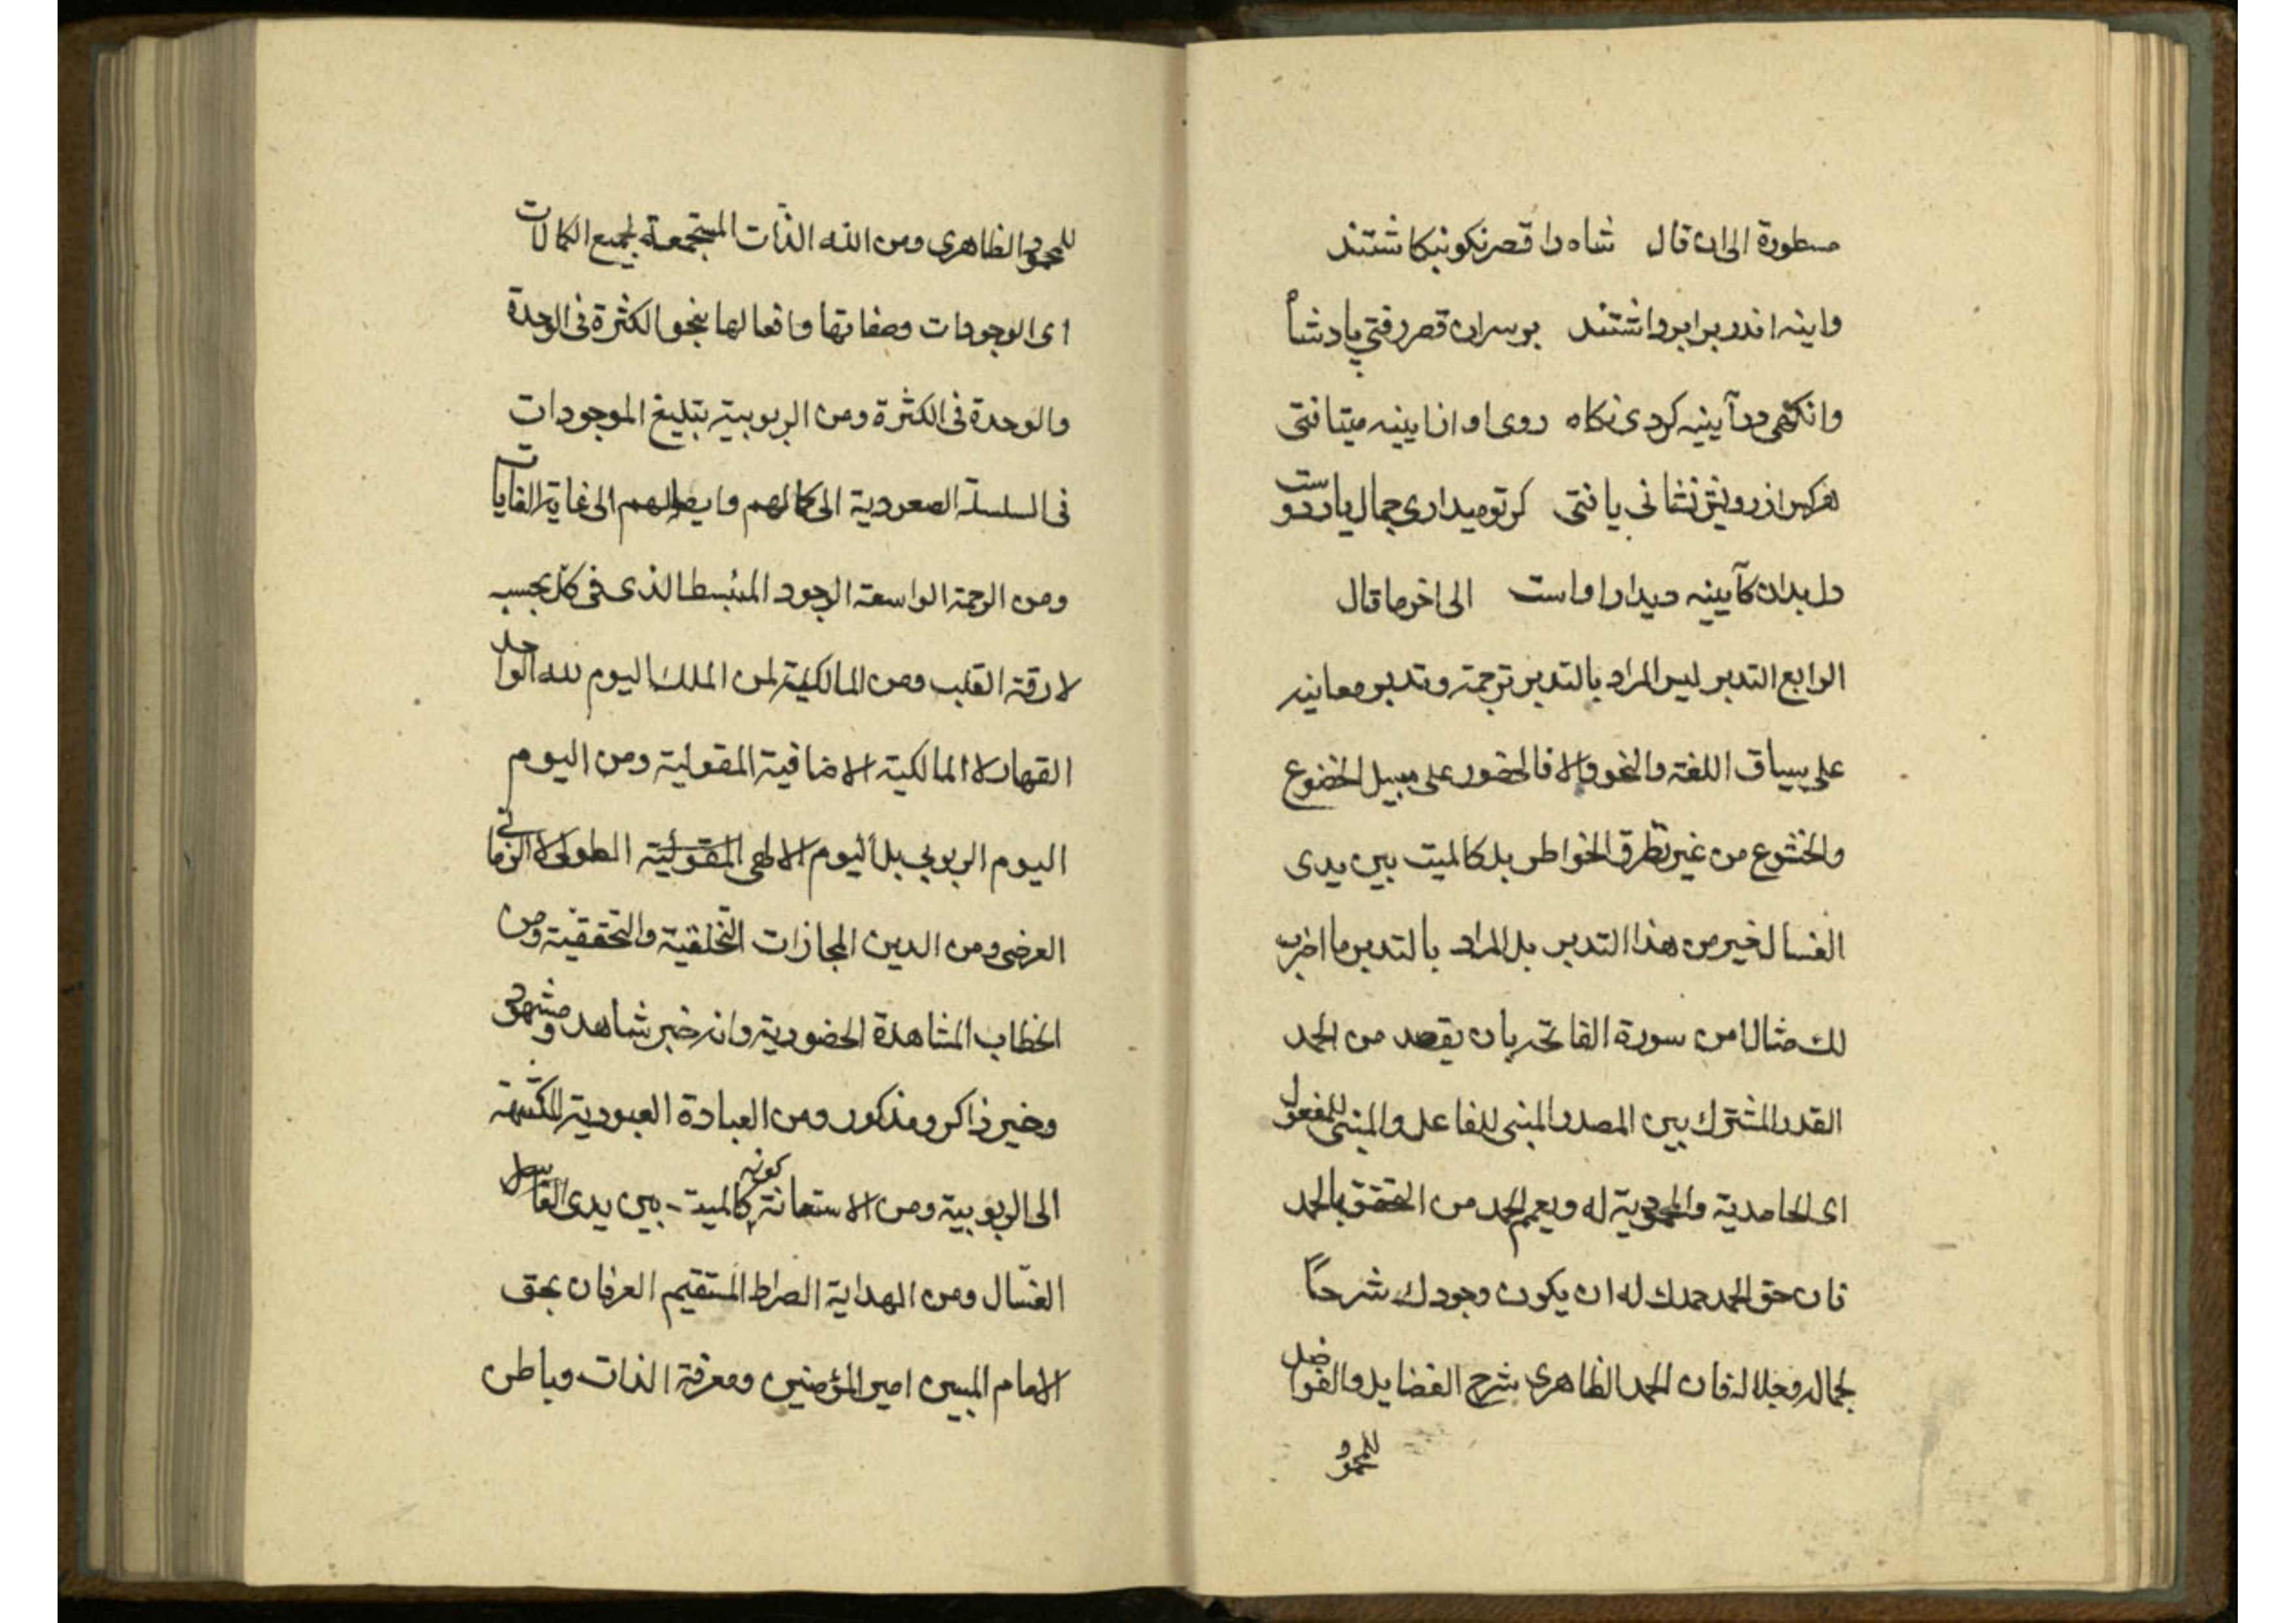 مسطورة الى ان قال شاه را قصر نكو نبكاشتند
واينه اندر برابر داشتند بر سران قصر رفتى پادشاه
وانكهى در آيينه كردى نكاه روى او از ايينه ميتافتى
هر كس از رويش نشانى يافتى كر تو ميدارى جمال يار دوست
دل بدان كآيينه ديدار اوست الى اخر ما قال
الرابع التدبر ليس المراد بالتدبر ترجمته وتدبر معانيه
على سياق اللغة والنحو والا فالحضور على سبيل الخضوع
والخشوع من غير تطرق الخواطر بل كالميت بين يدى
الغسال خير من هذا التدبر بل المراد بالتدبر ما اضرب
لك مثالا من سورة الفاتحة بان يقصد من الحمد
القدر المشترك بين المصدر المبنى للفاعل والمبنى للمفعول
اى الحامدية والمحمودية له ويعم الحمد من التحقق بالحمد
فان حق الحمد حمدك له ان يكون وجودك شرحاً
لجماله وجلاله فان الحمد الظاهرى شرح الفضايل والفواضل
للمحمود
للمحمود الظاهرى ومن الله الذات المستجمعة لجميع الكمالات
اى الوجودات وصفاتها وافعالها بنحو الكثرة فى الوحدة
والوحدة فى الكثرة ومن الربوبية بتليغ الموجودات
فى السلسلة الصعودية الى كمالهم وايصالهم الى غاية الغايات
ومن الرحمة الواسعة الوجود المنبسط الذى فى كل بحسبه
لا رقة القلب ومن المالكية لمن الملك اليوم لله الواحد
القهار لا المالكية الاضافية المقولية ومن اليوم
اليوم الربوبى بل اليوم الالهى المقولية الطولى لا الزمانى
العرضى ومن الدين المجازات التخلقية والتحققية ومن
الخطاب المشاهدة الحضورية وانه خير شاهد ومشهود
وخير ذاكر ومذكور ومن العبادة العبودية
الى الربوبية ومن الاستعانة كونه كالميت بين يدى الغاسل
الغسّال ومن الهداية الصراط المستقيم العرفان بحق
الامام المبين امير المؤمنين ومعرفة الذات وباطن